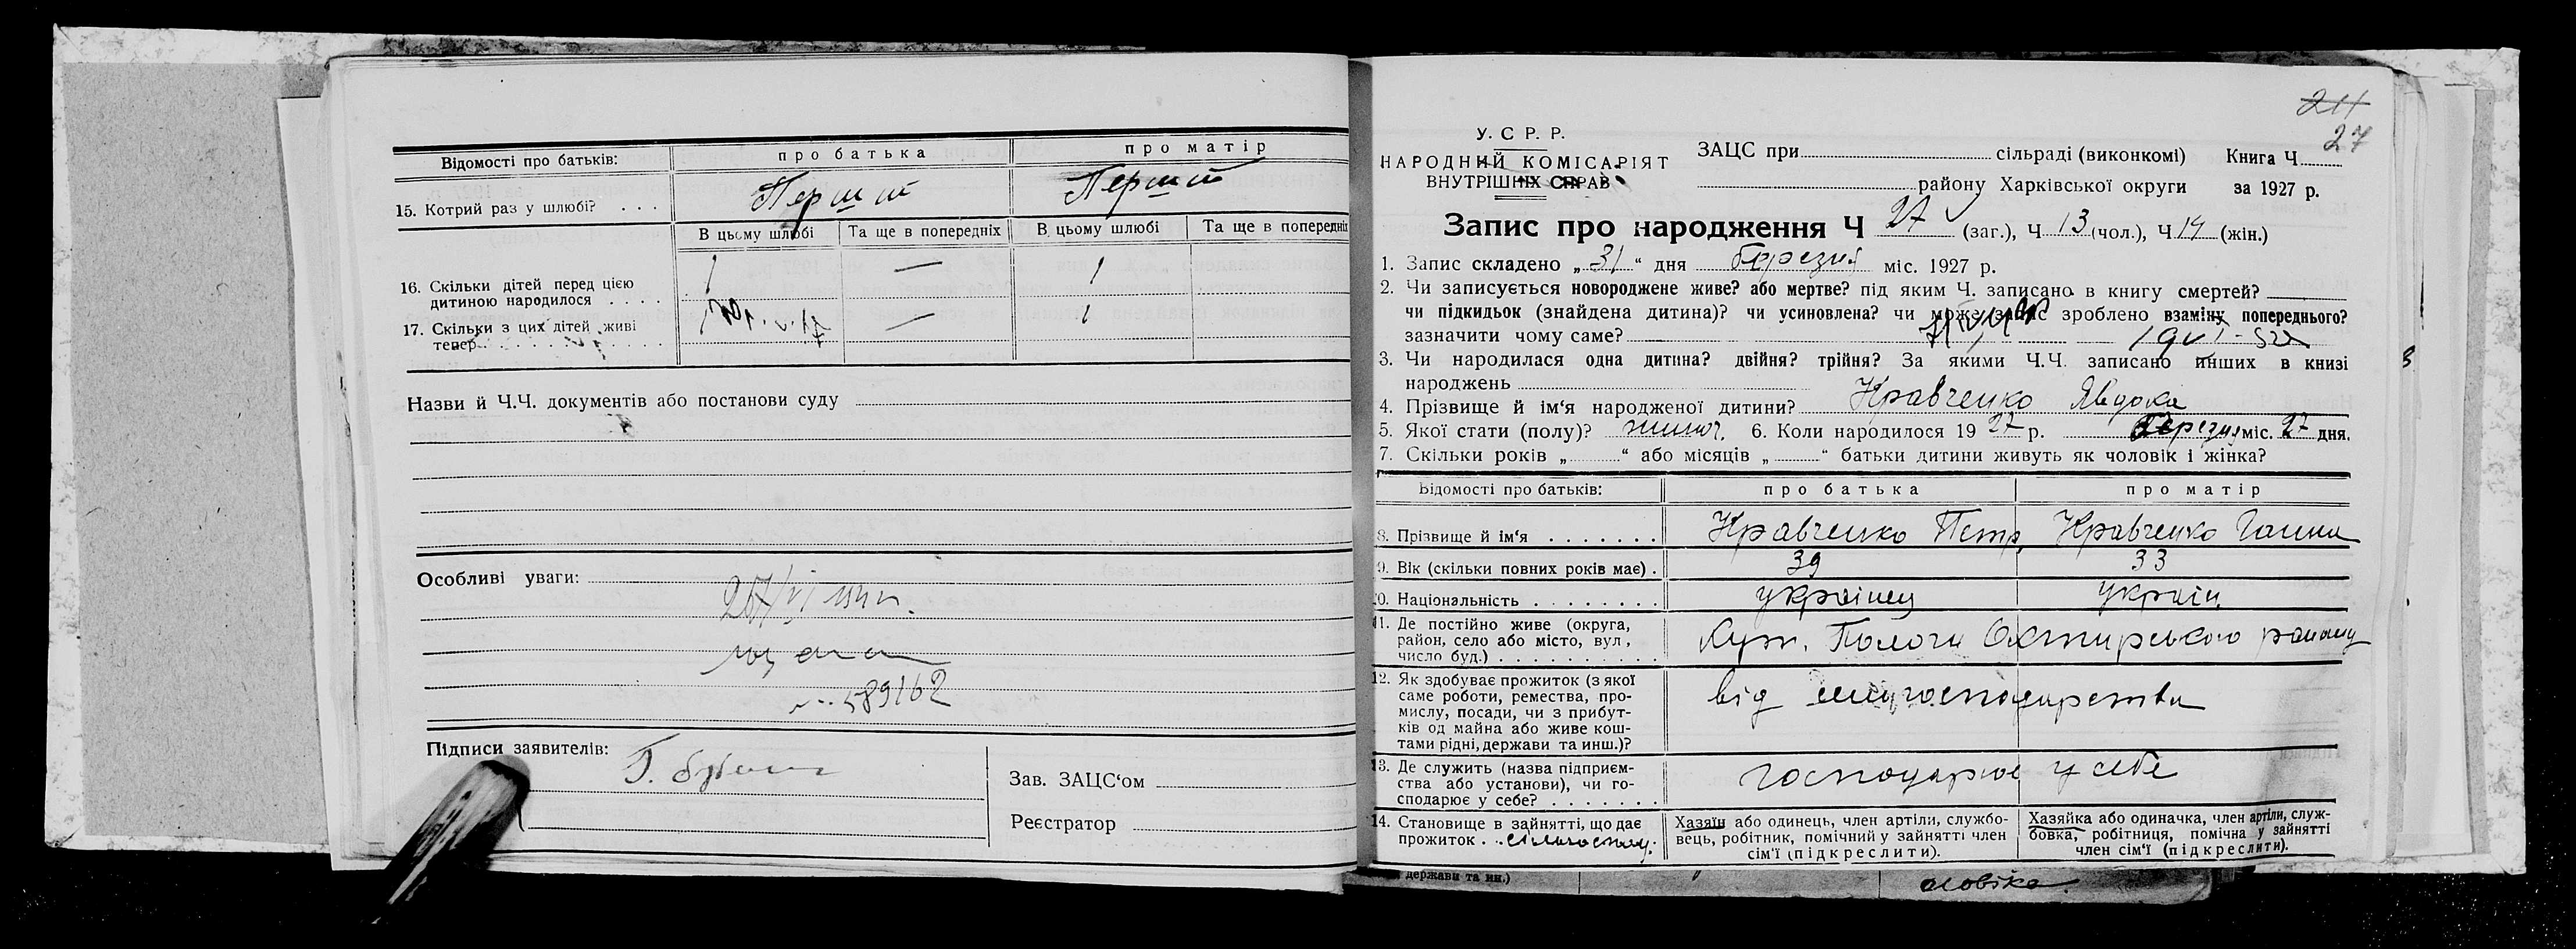 Відомості про батьків: про батька про матір
15. Котрий раз у шлюбі? . . . Перший Перший
В цьому шлюбі Та ще в попередніх В цьому шлюбі Та ще в попередніх
16. Скільки дітей перед цією
дитиною народилося . . . . 1 — 1
17. Скільки з цих дітей живі
тепер . . . . . . . . . . . — 1
Назви й Ч.Ч. документів або постанови суду
Особливі уваги:
589162
Підписи заявителів:
Зав. ЗАЦС‘ом
Реєстратор
211
27
У. С Р. Р.
НАРОДНИЙ КОМІСАРІЯТ
ВНУТРІШНІХ СПРАВ
ЗАЦС при сільраді (виконкомі) Книга Ч
району Харківської округи за 1927 р.
Запис про народження Ч 27 (заг.), Ч 13 (чол.), Ч 14 (жін.)
1. Запис складено „ 31 “ дня березня міс. 1927 р.
2. Чи записується новороджене живе? або мертве? під яким Ч. записано в книгу смертей?
чи підкидьок (знайдена дитина)? чи усиновлена? чи може запис зроблено взаміну попереднього?
зазначити чому саме?
3. Чи народилася одна дитина? двійня? трійня? За якими Ч.Ч. записано инших в книзі
народжень
4. Прізвище й ім‘я народженої дитини? Кравченко Явдоха
5. Якої стати (полу)? жіноч. 6. Коли народилося 19 27 р. березня міс. 27 дня.
7. Скільки років „ “ або місяців „ “ батьки дитини живуть як чоловік і жінка?
Відомості про батьків: про батька про матір
8. Прізвище й ім‘я . . . . . . . Кравченко Петр Кравченко Ганна
9. Вік (скільки повних років має) . 39 33
10. Національність . . . . . . . . українец україн.
11. Де постійно живе (округа,
район, село або місто, вул.,
число буд.) . . . . . . . . . . Хут. Пологи Охтирського району
12. Як здобуває прожиток (з якої
саме роботи, ремества, про-
мислу, посади, чи з прибут-
ків од майна або живе кош-
тами рідні, держави та инш.)? від сільгосподарства
13. Де служить (назва підприєм-
ства або установи), чи го-
сподарює у себе? . . . . . . . господарює у себе
14. Становище в зайнятті, що дає
прожиток . .
Хазяїн або одинець, член артіли, службо-
вець, робітник, помічний у зайнятті член
сім‘ї (підкреслити).
Хазяйка або одиначка, член артіли, служ-
бовка, робітниця, помічна у зайнятті
член сім‘ї (підкреслити).
держави та ин.)